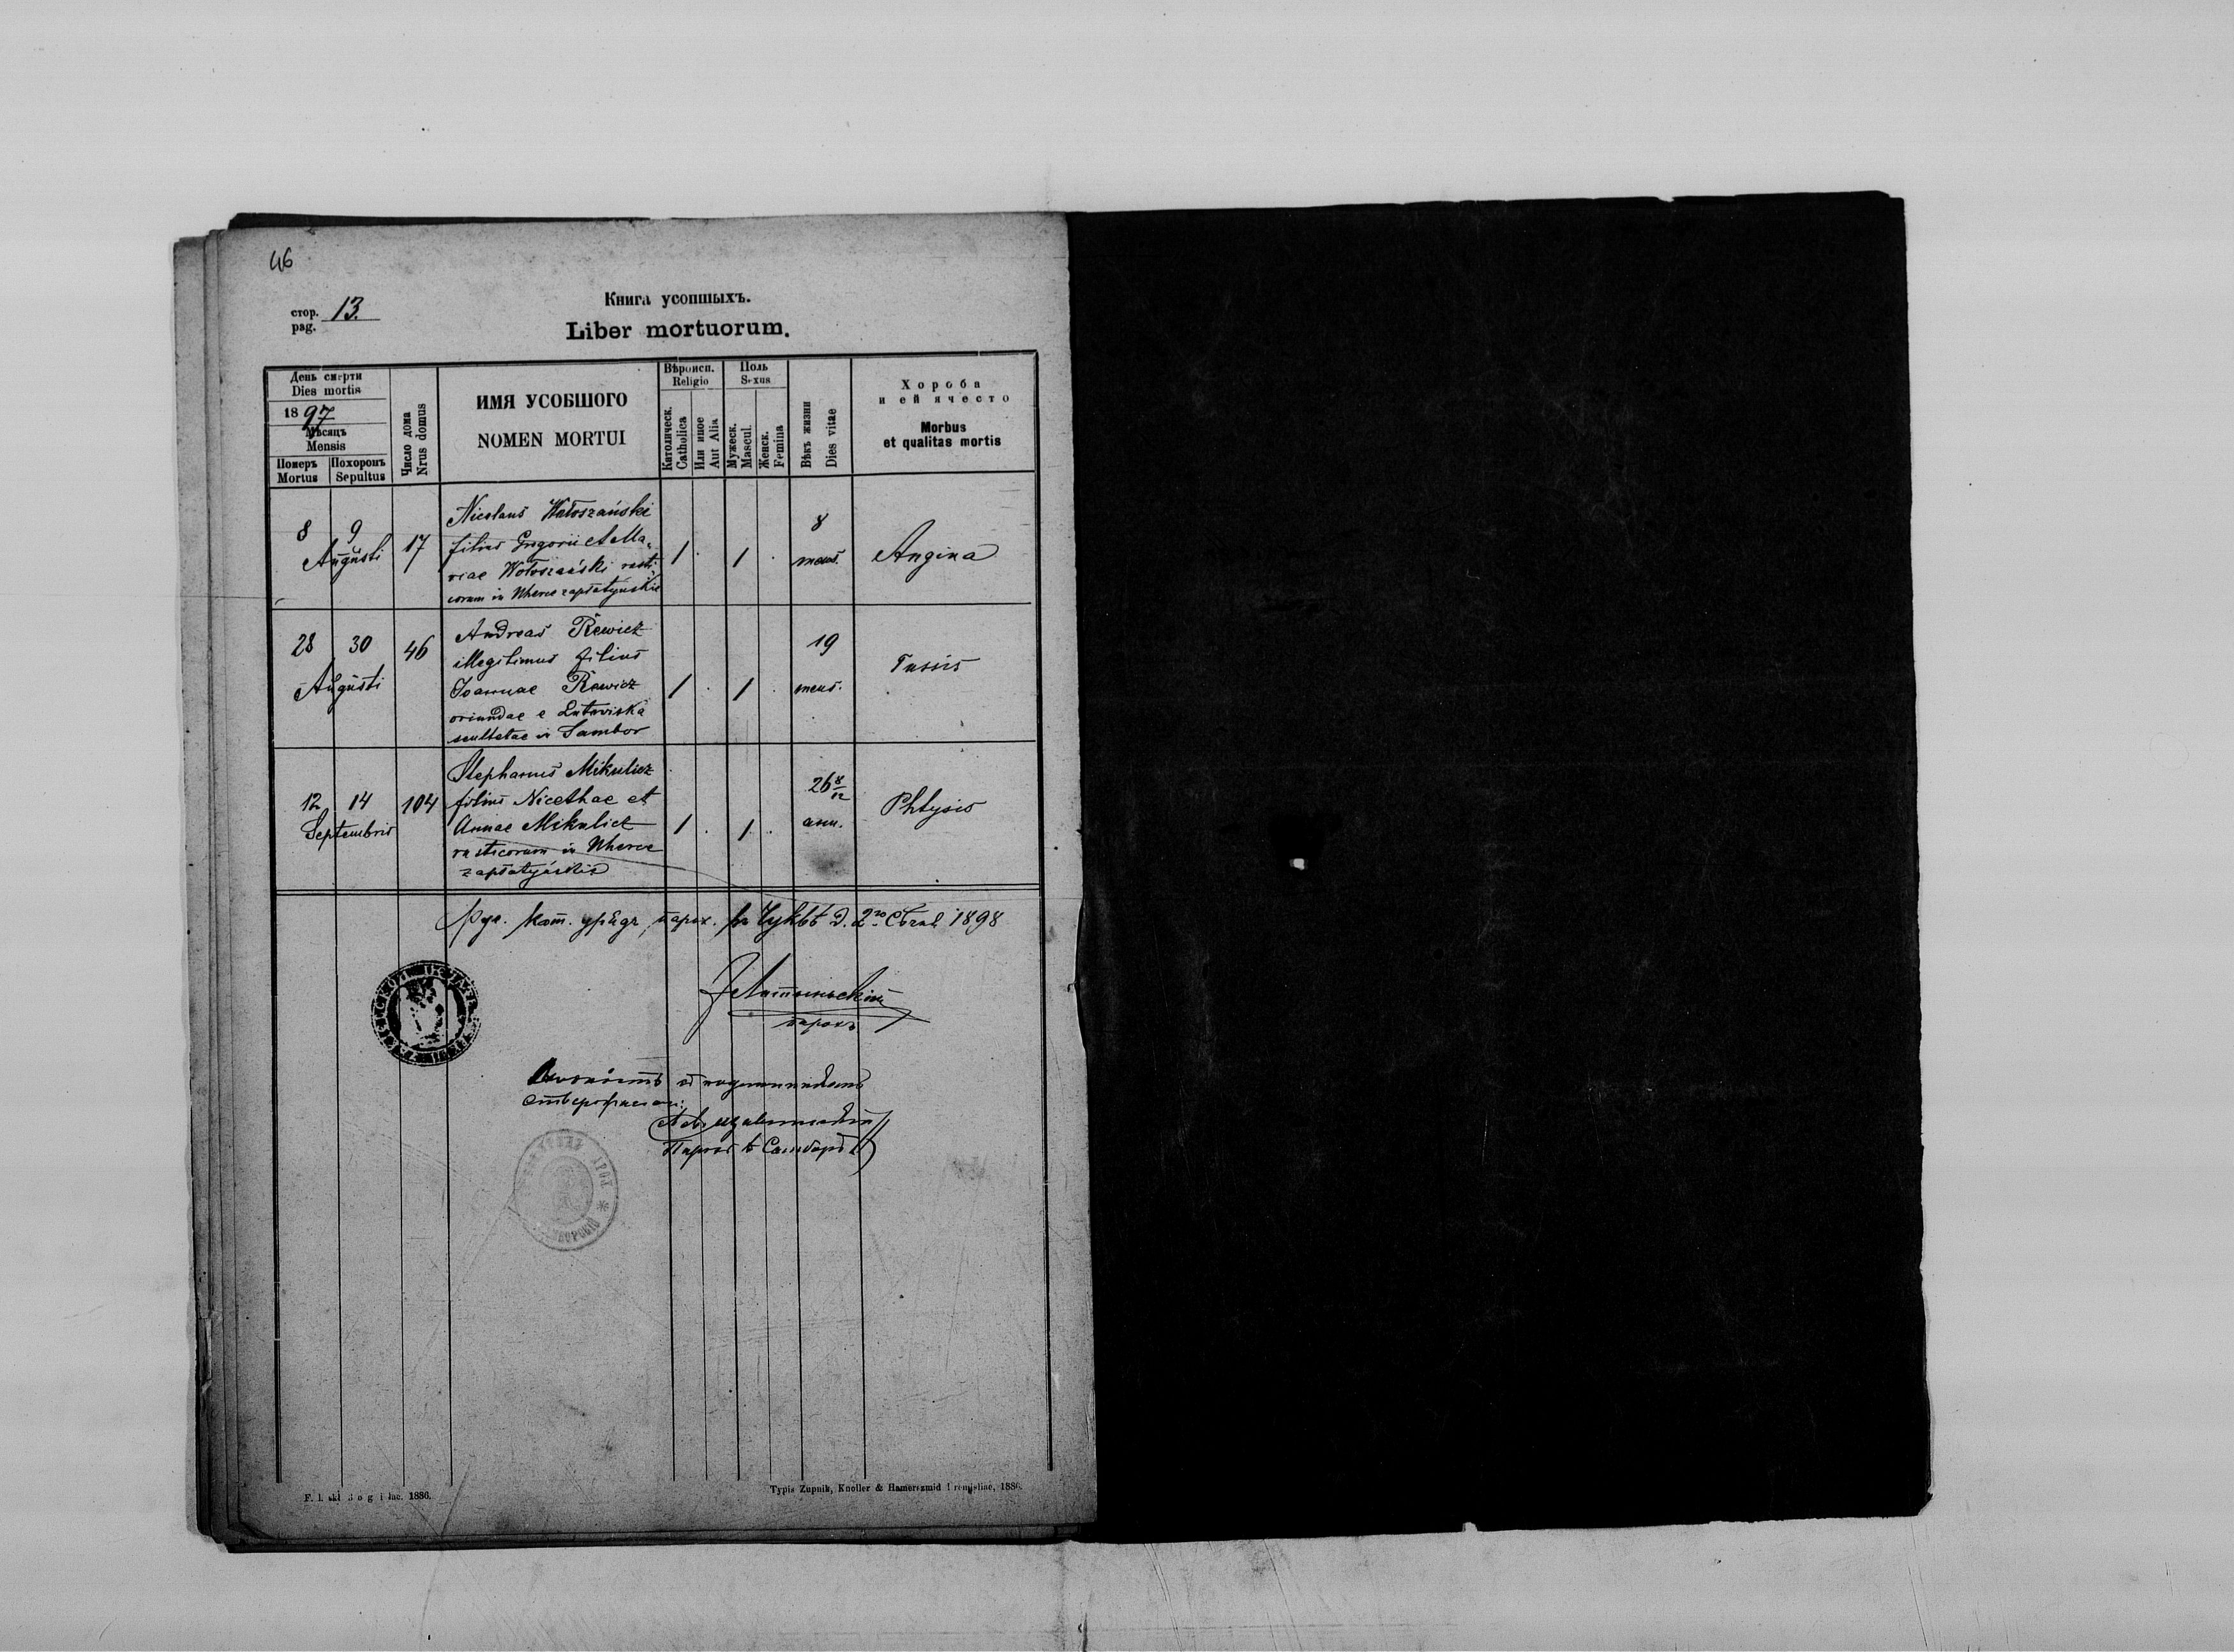 46
стор. 13.
pag.
Книга усопшыхъ.
Liber mortuorum.
День смерти
Dies mortis
1897
Мѣсяць
Mensis
Померъ Похоронъ
Mortus Sepultus
Число дома
Nrus domus
ИМЯ УСОБШОГО
NOMEN MORTUI
Вѣроисп.
Religio
Католическ.
Catholica
Или иное
Aut Alia
Поль
Sexus
Мужеск.
Mascul.
Женск.
Femina
Вѣкъ жизни
Dies vitae
Хороба
и ей ячесто
Morbus
et qualitas mortis
8 9
Augusti
17
Nicolaus Wołoszański
filius Gregorii et Ma-
riae Wołoszański rusti-
corum in Wherce zapłatyńskie
1 . 1 .
8
mens.
Angina
28 30
Augusti
46
Andreas Rewicz
illegitimus filius
Joannae Rewicz
oriundae e Lutowiska
in Sambor
1 . 1 .
19
mens.
Tussis
12 14
Septembris
104
Stephanus Mikulicz
filius Nicethae et
Annae Mikulicz
rusticorum in Wherce
zapłatyńskie
1 . 1 .
26 8/12
ann.
Phtysis
кат. урядъ парох. въ Чуквѣ д. 2го Сѣчня 1898
парохъ
въ Самборѣ
Typis Zupnik, Knoller & Hamerszmid Premisliae, 1886.